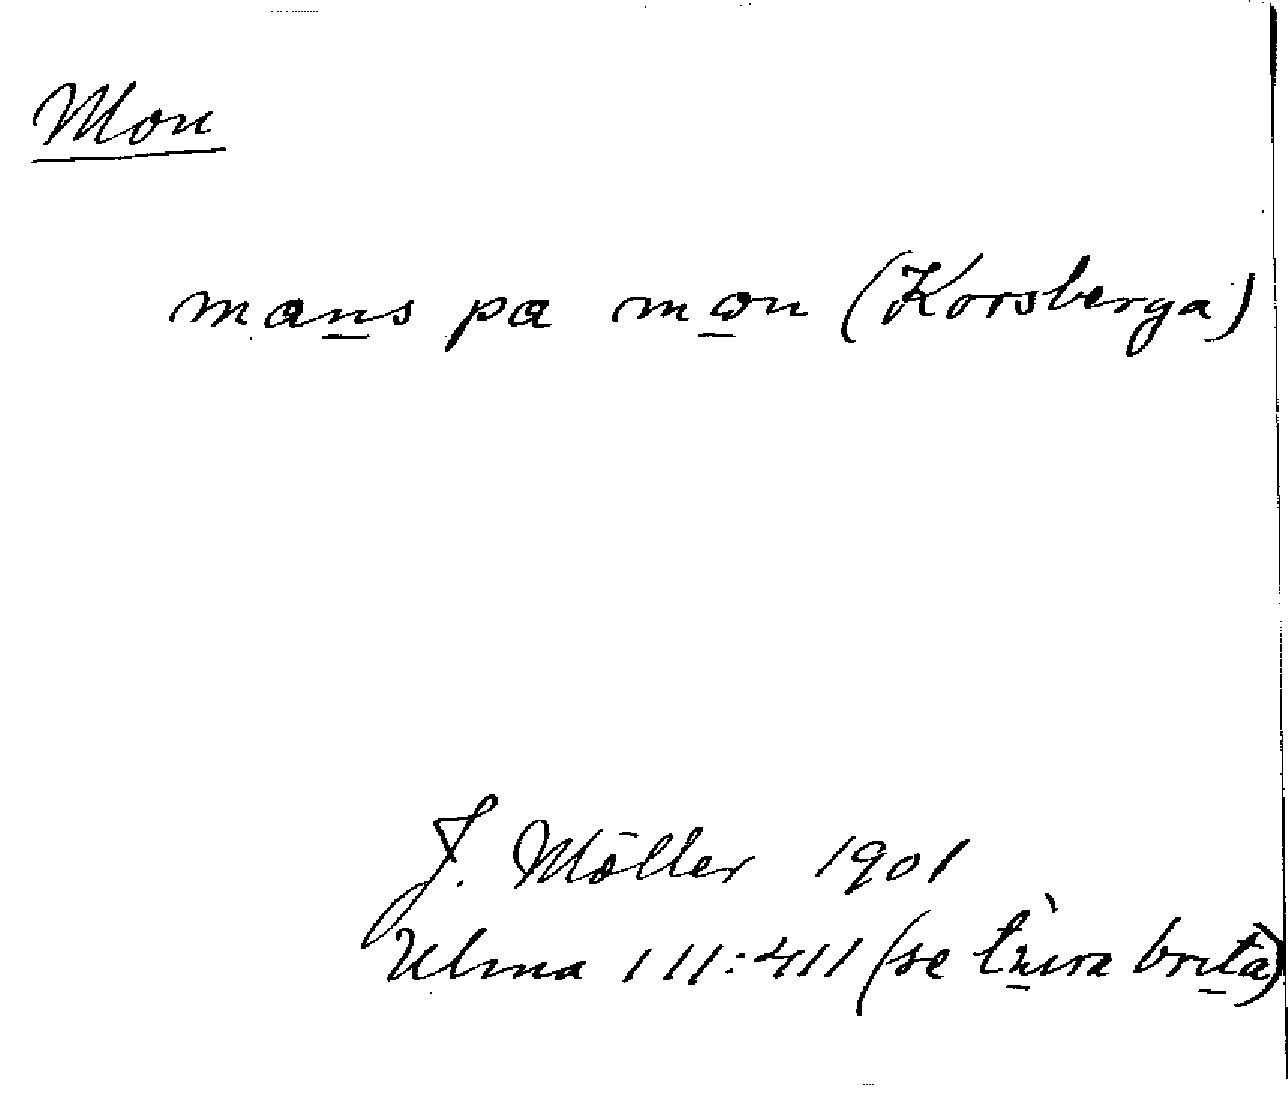 Mon
mans pa mon (Korsberga)
J. Möller 1901
Ulma 111:411 (se